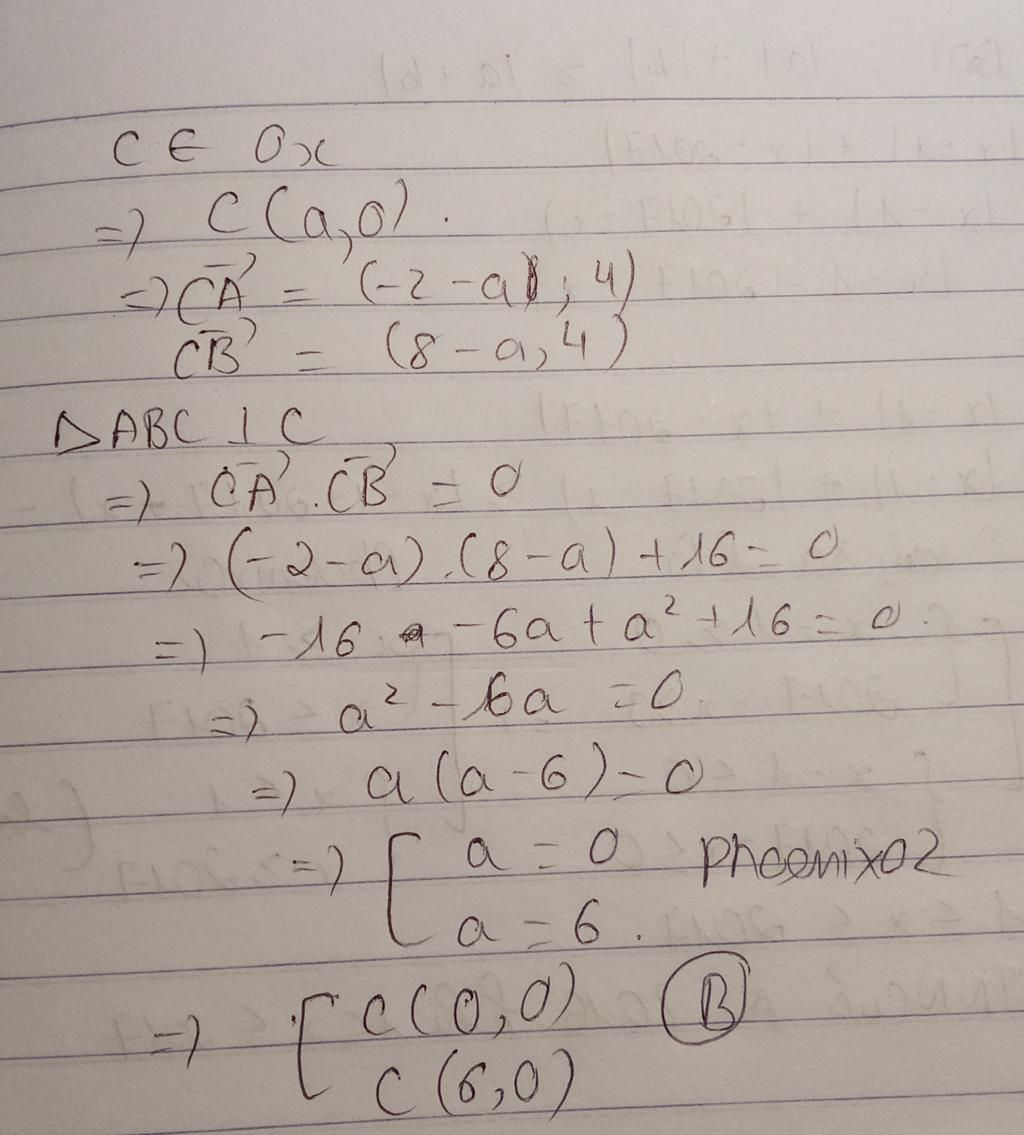 C ∈ Ox
=> C(a,0).
=> \vec{CA} = (-2-a; 4)
\vec{CB} = (8-a, 4)
△ABC ⊥ C
=> \vec{CA}.\vec{CB} = 0
=> (-2-a).(8-a)+16=0
=> -16 -6a+a²+16=0.
=> a²-6a=0.
=> a(a-6)=0
=> [ a=0 Phoenix02
a=6.
=> [ C(0,0) (B)
C(6,0)